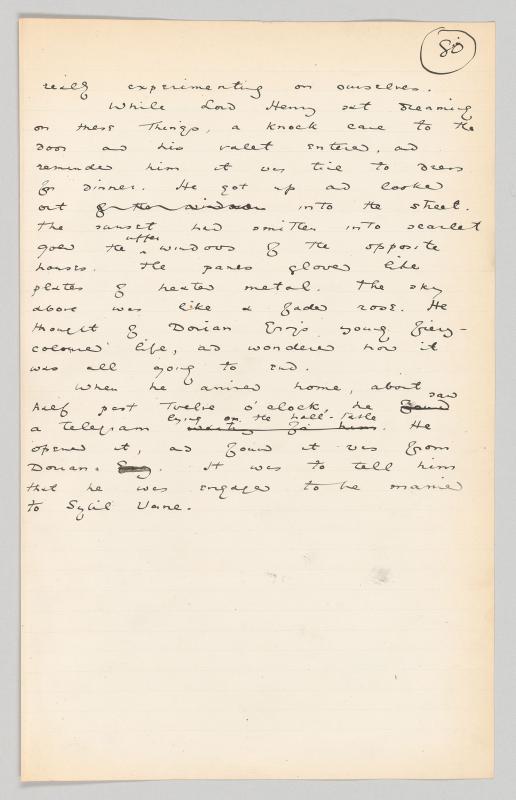 80
really experimenting on ourselves.
While Lord Henry sat dreaming
on these things, a knock came to the
door and his valet entered, and
reminded him it was time to dress
for dinner. He got up and looked
out of the window into the street.
The sunset had smitten into scarlet
gold the upper windows of the opposite
houses. The panes glowed like
plates of heated metal. The sky
above was like a faded rose. He
thought of Dorian Gray's young fiery-
coloured life, and wondered how it
was all going to end.
When he arrived home, about
half past twelve o'clock, he found saw
a telegram waiting for him lying on the hall-table. He
opened it, and found it was from
Dorian Gray. It was to tell him
that he was engaged to be married
to Sybil Vane.